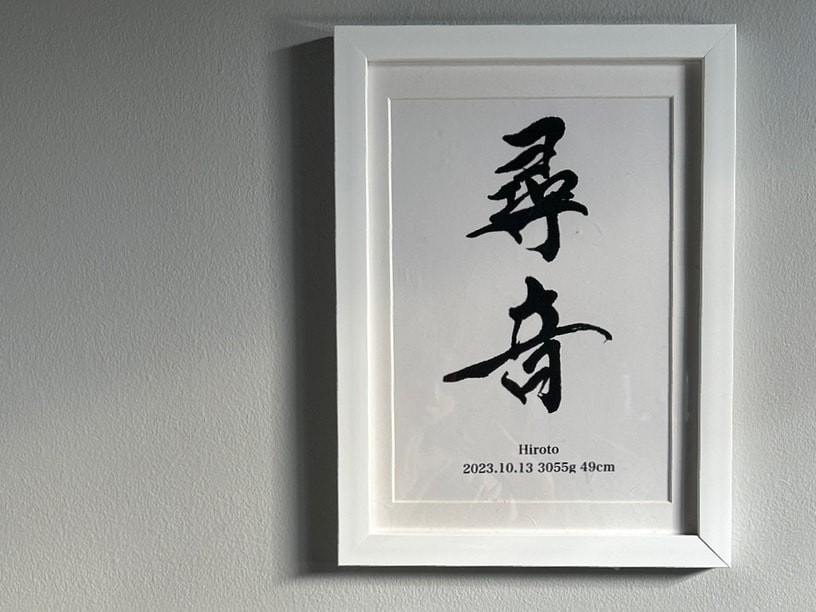 尋
音
Hiroto
2023.10.13 3055g 49cm